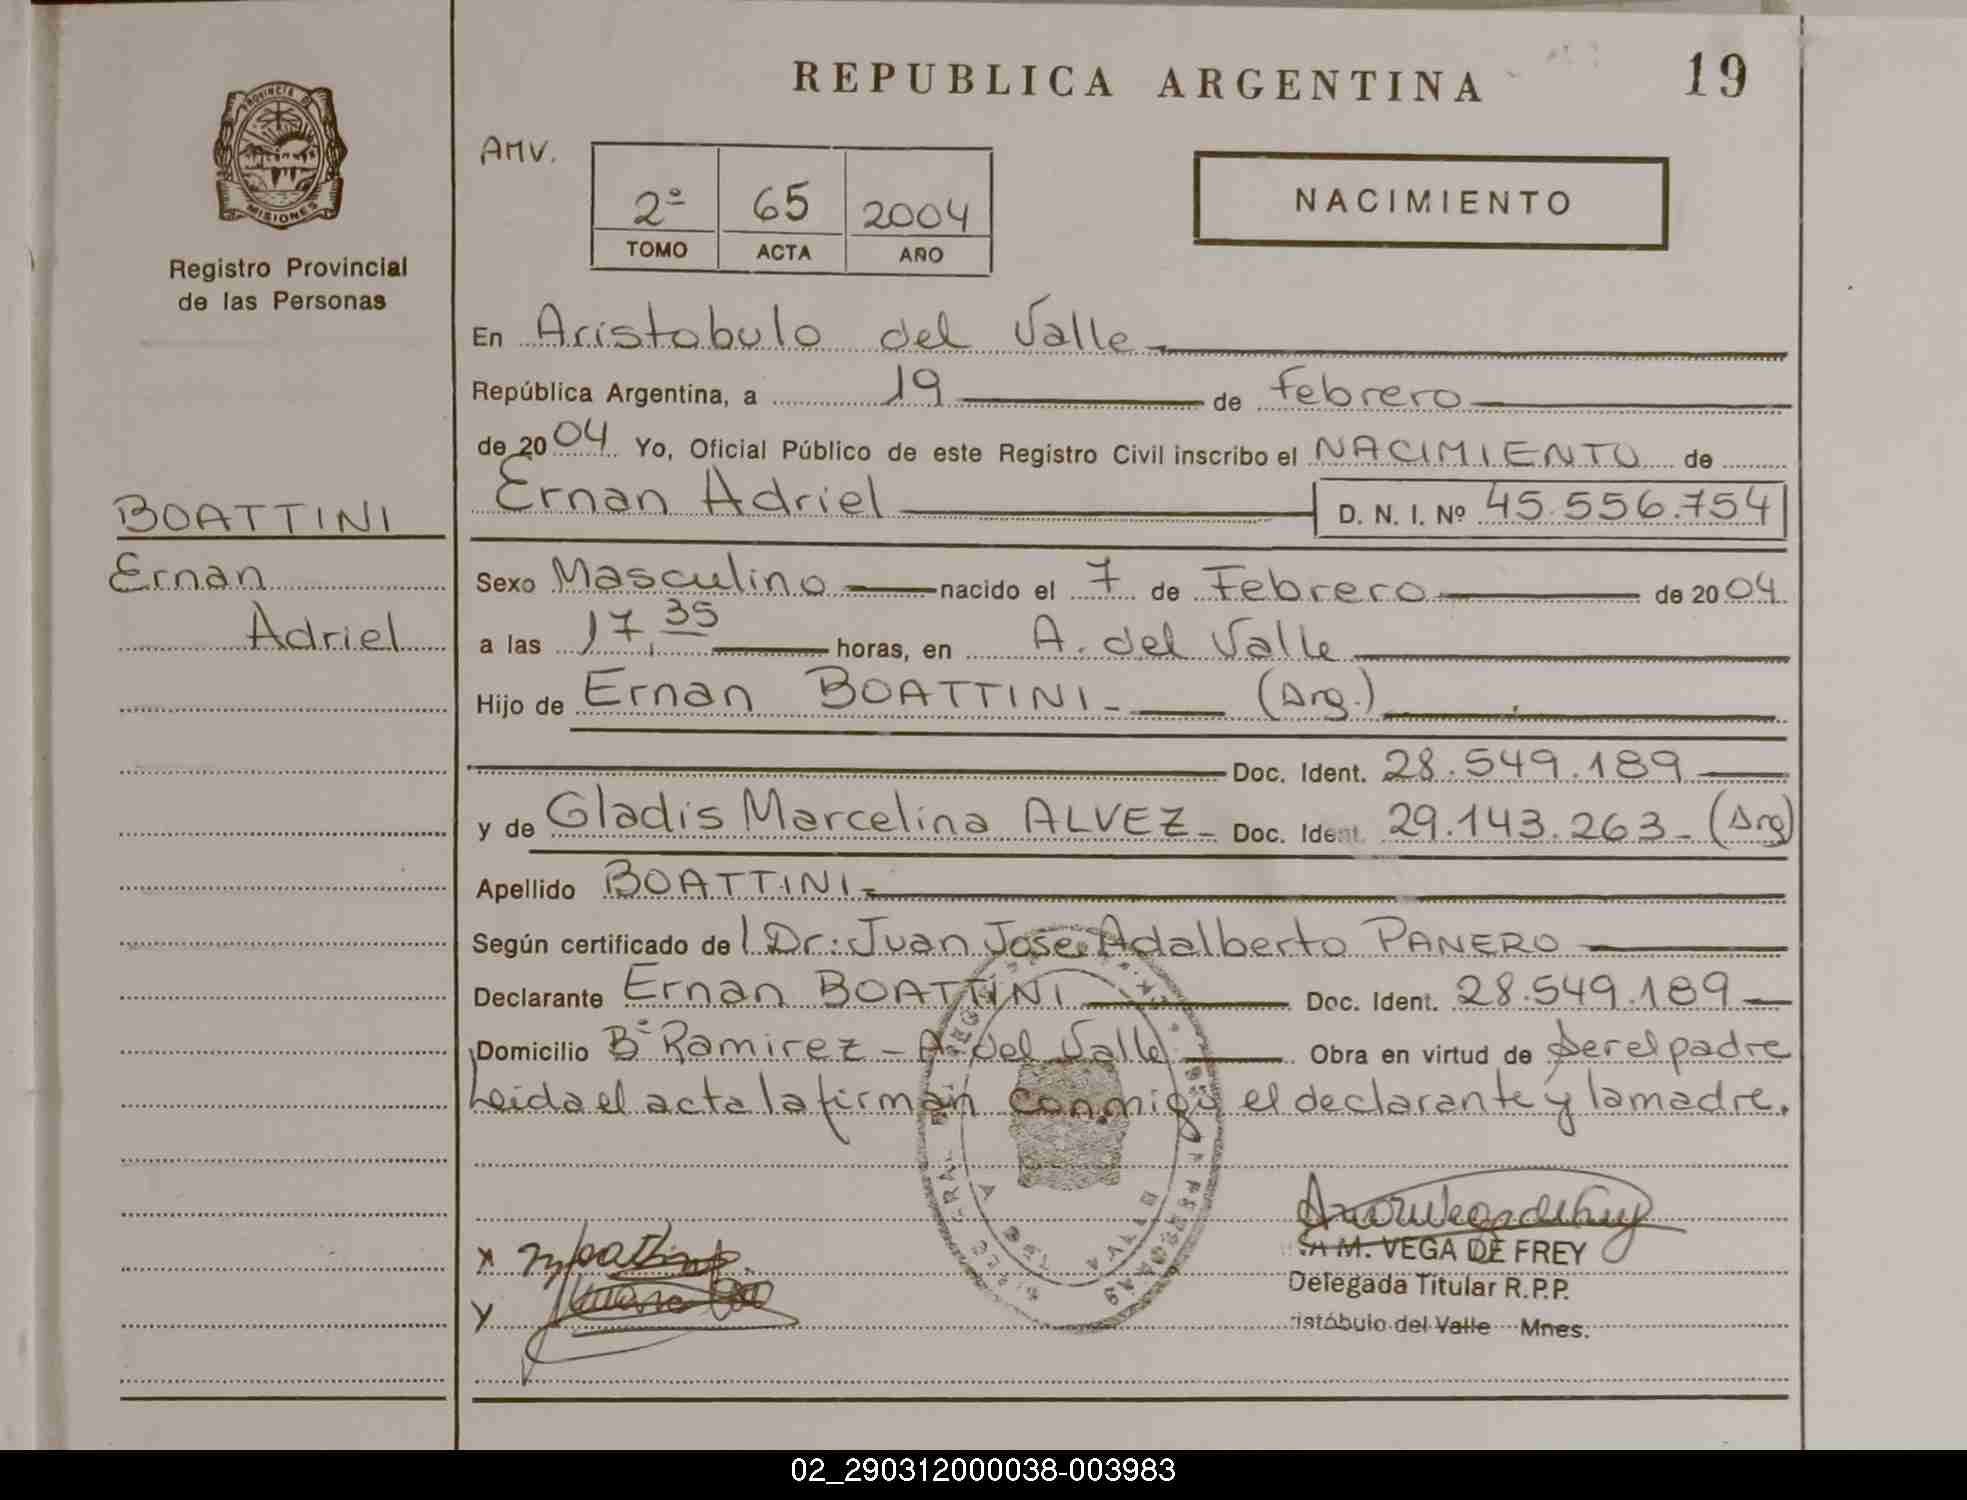 REPUBLICA ARGENTINA
19
PROVINCIA DE
MISIONES
Registro Provincial
de las Personas
AMV.
2º 65 2004
TOMO ACTA AÑO
NACIMIENTO
En Aristobulo del Valle
República Argentina, a 19 de Febrero
de 2004 Yo, Oficial Público de este Registro Civil inscribo el NACIMIENTO de
Ernan Adriel D. N. I. Nº 45.556.754
BOATTINI
Ernan
Adriel
Sexo Masculino nacido el 7 de Febrero de 2004.
a las 17,35 horas, en A. del Valle
Hijo de Ernan BOATTINI - (Arg.)
Doc. Ident. 28.549.189
y de Gladis Marcelina ALVEZ - Doc. Ident. 29.143.263 - (Arg)
Apellido BOATTINI -
Según certificado del Dr.: Juan Jose Adalberto PANERO
Declarante Ernan BOATTINI Doc. Ident. 28.549.189
Domicilio Bº Ramirez - A. del Valle Obra en virtud de ser el padre
Leida el acta la firman conmigo el declarante y la madre.
x
y
M. VEGA DE FREY
Delegada Titular R.P.P.
istóbulo del Valle Mnes.
02_290312000038-003983